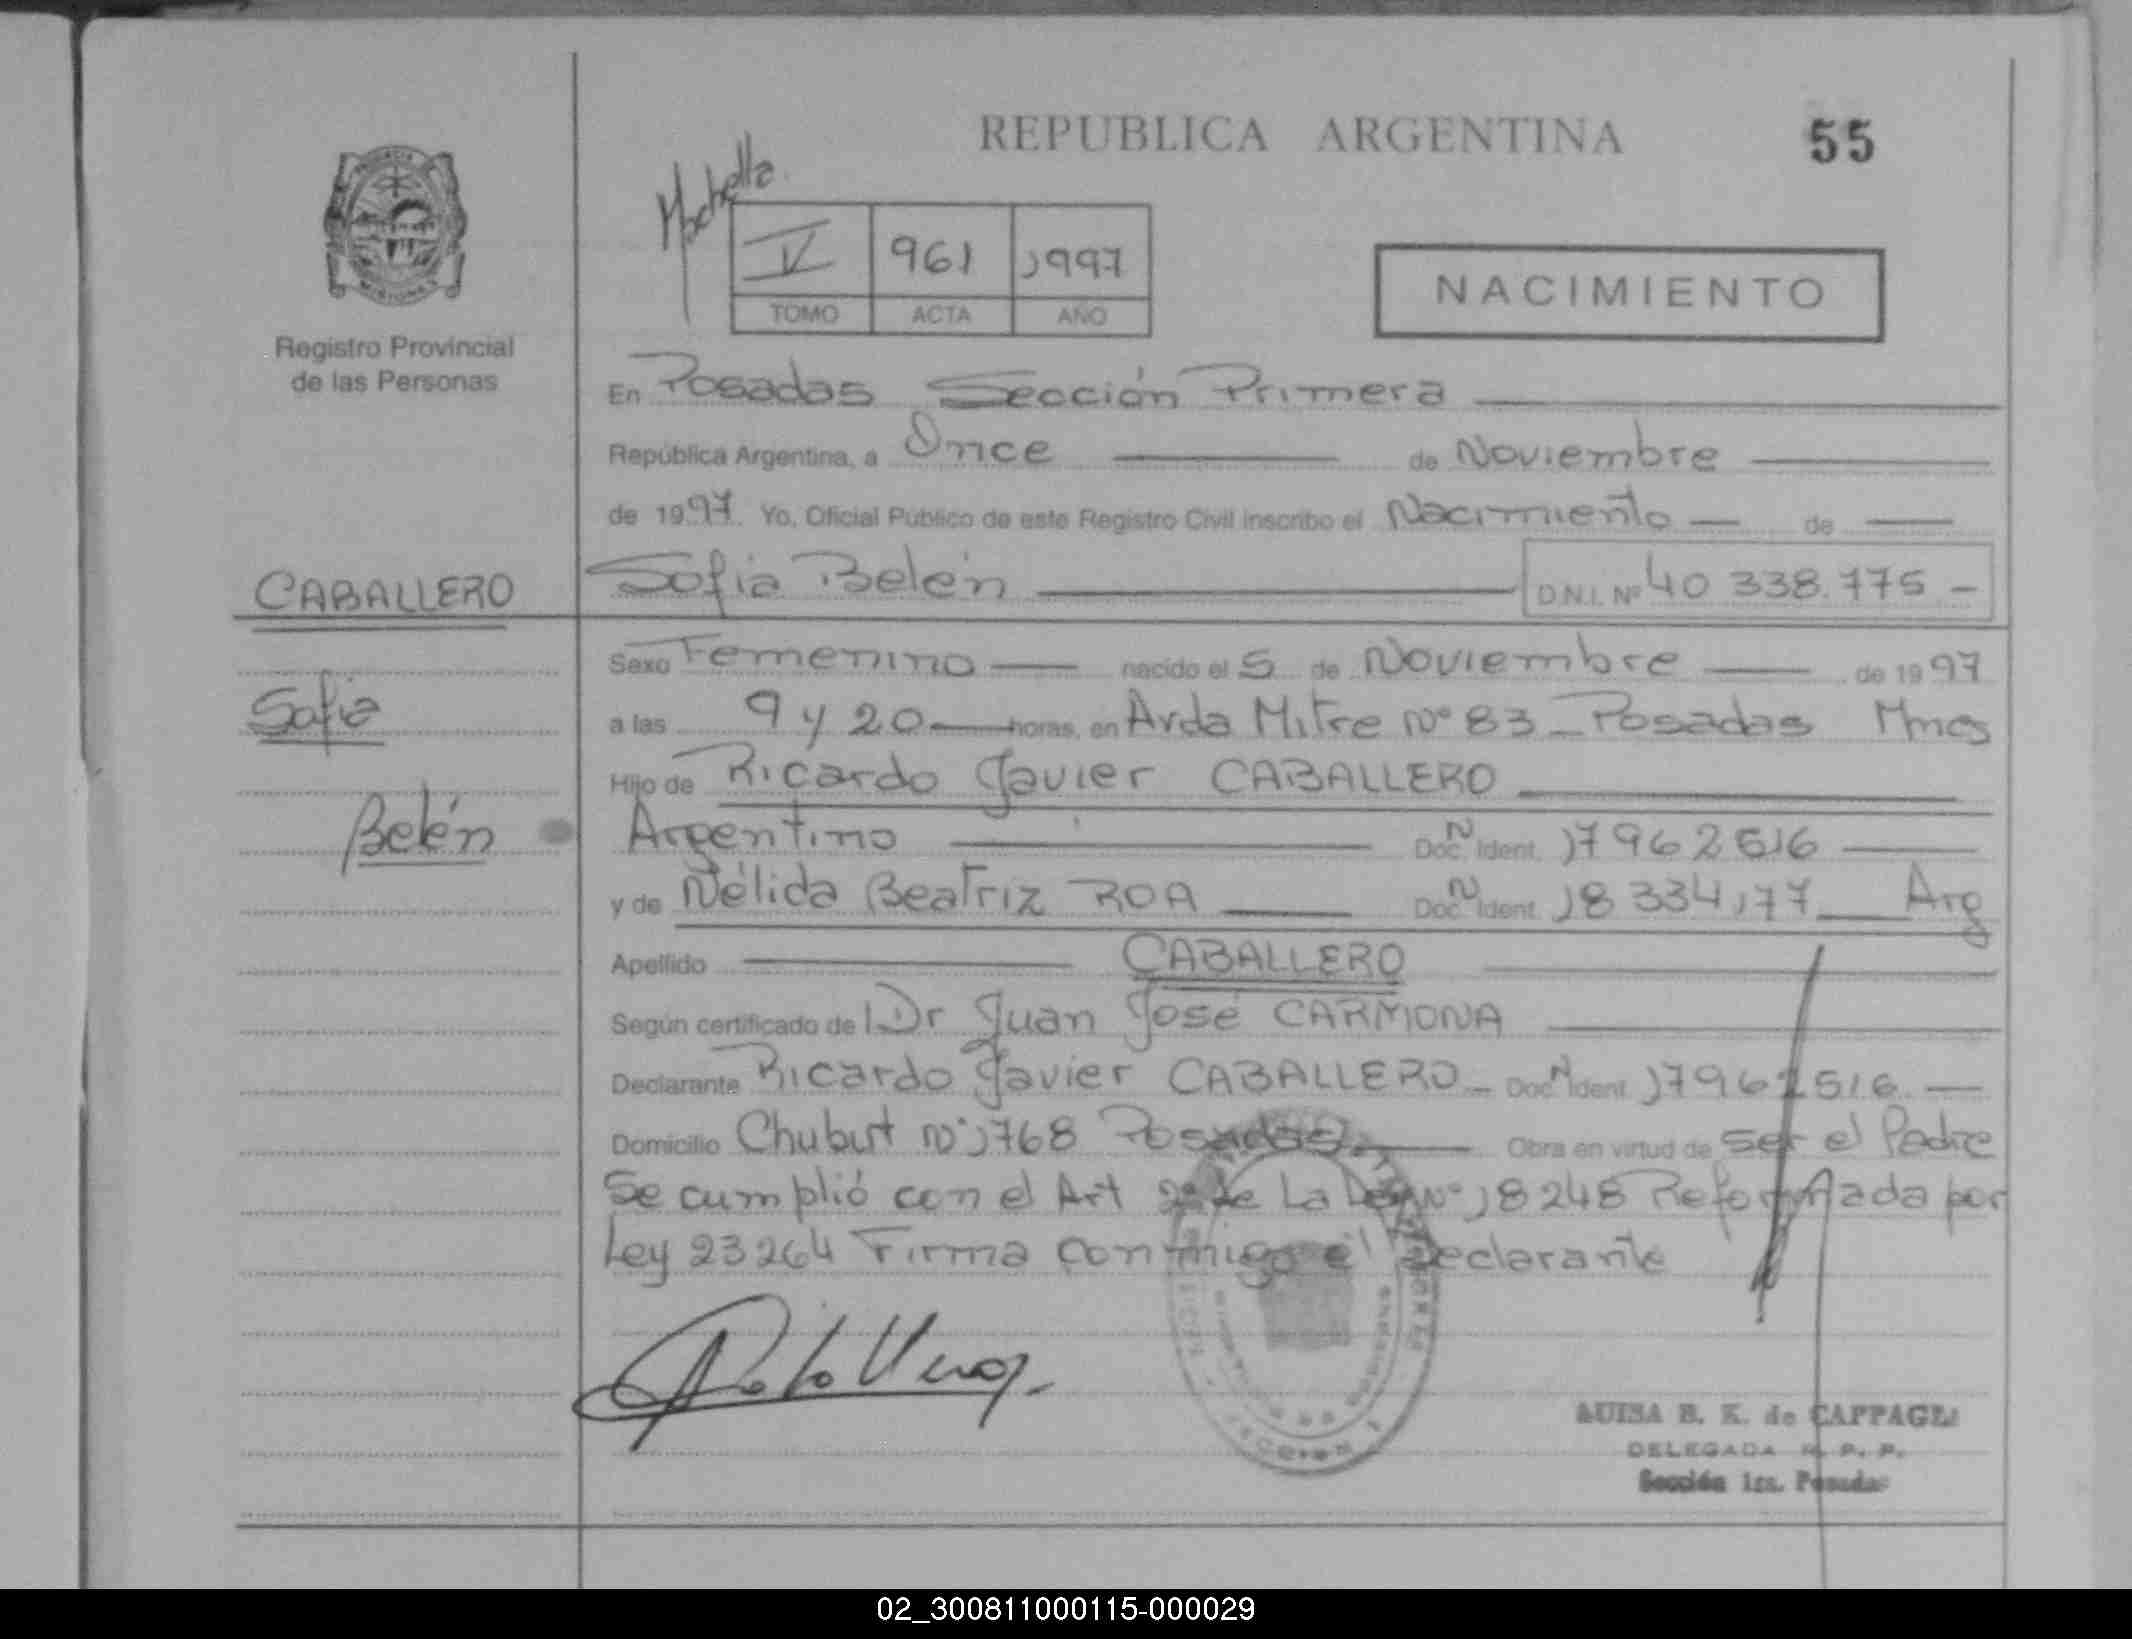 REPUBLICA ARGENTINA
55
PROVINCIA
MISIONES
Registro Provincial
de las Personas
IV 961 1997
TOMO ACTA AÑO
NACIMIENTO
En Posadas Sección Primera
República Argentina, a Once de Noviembre
de 1997. Yo, Oficial Público de este Registro Civil inscribo el Nacimiento de
CABALLERO
Sofia Belén D.N.I. Nº 40 338.775
Sexo Femenino nacido el 5 de Noviembre de 1997
Sofia
a las 9 y 20 horas, en Avda Mitre Nº 83 Posadas Mnes
Hijo de Ricardo Javier CABALLERO
Belén
Argentino Doc. N Ident. 17962516
y de Nélida Beatriz ROA Doc. N Ident. 18334177 Arg
Apellido CABALLERO
Según certificado de Dr Juan José CARMONA
Declarante Ricardo Javier CABALLERO Doc. N Ident. 17962516
Domicilio Chubut Nº 1768 Posadas Obra en virtud de ser el Padre
Se cumplió con el Art 2º de La Ley Nº 18248 Reformada por
Ley 23264 Firma conmigo el declarante
LUISA B. K. de CAPPAGLI
DELEGADA R. P. P.
Sección 1ra. Posadas
02_300811000115-000029